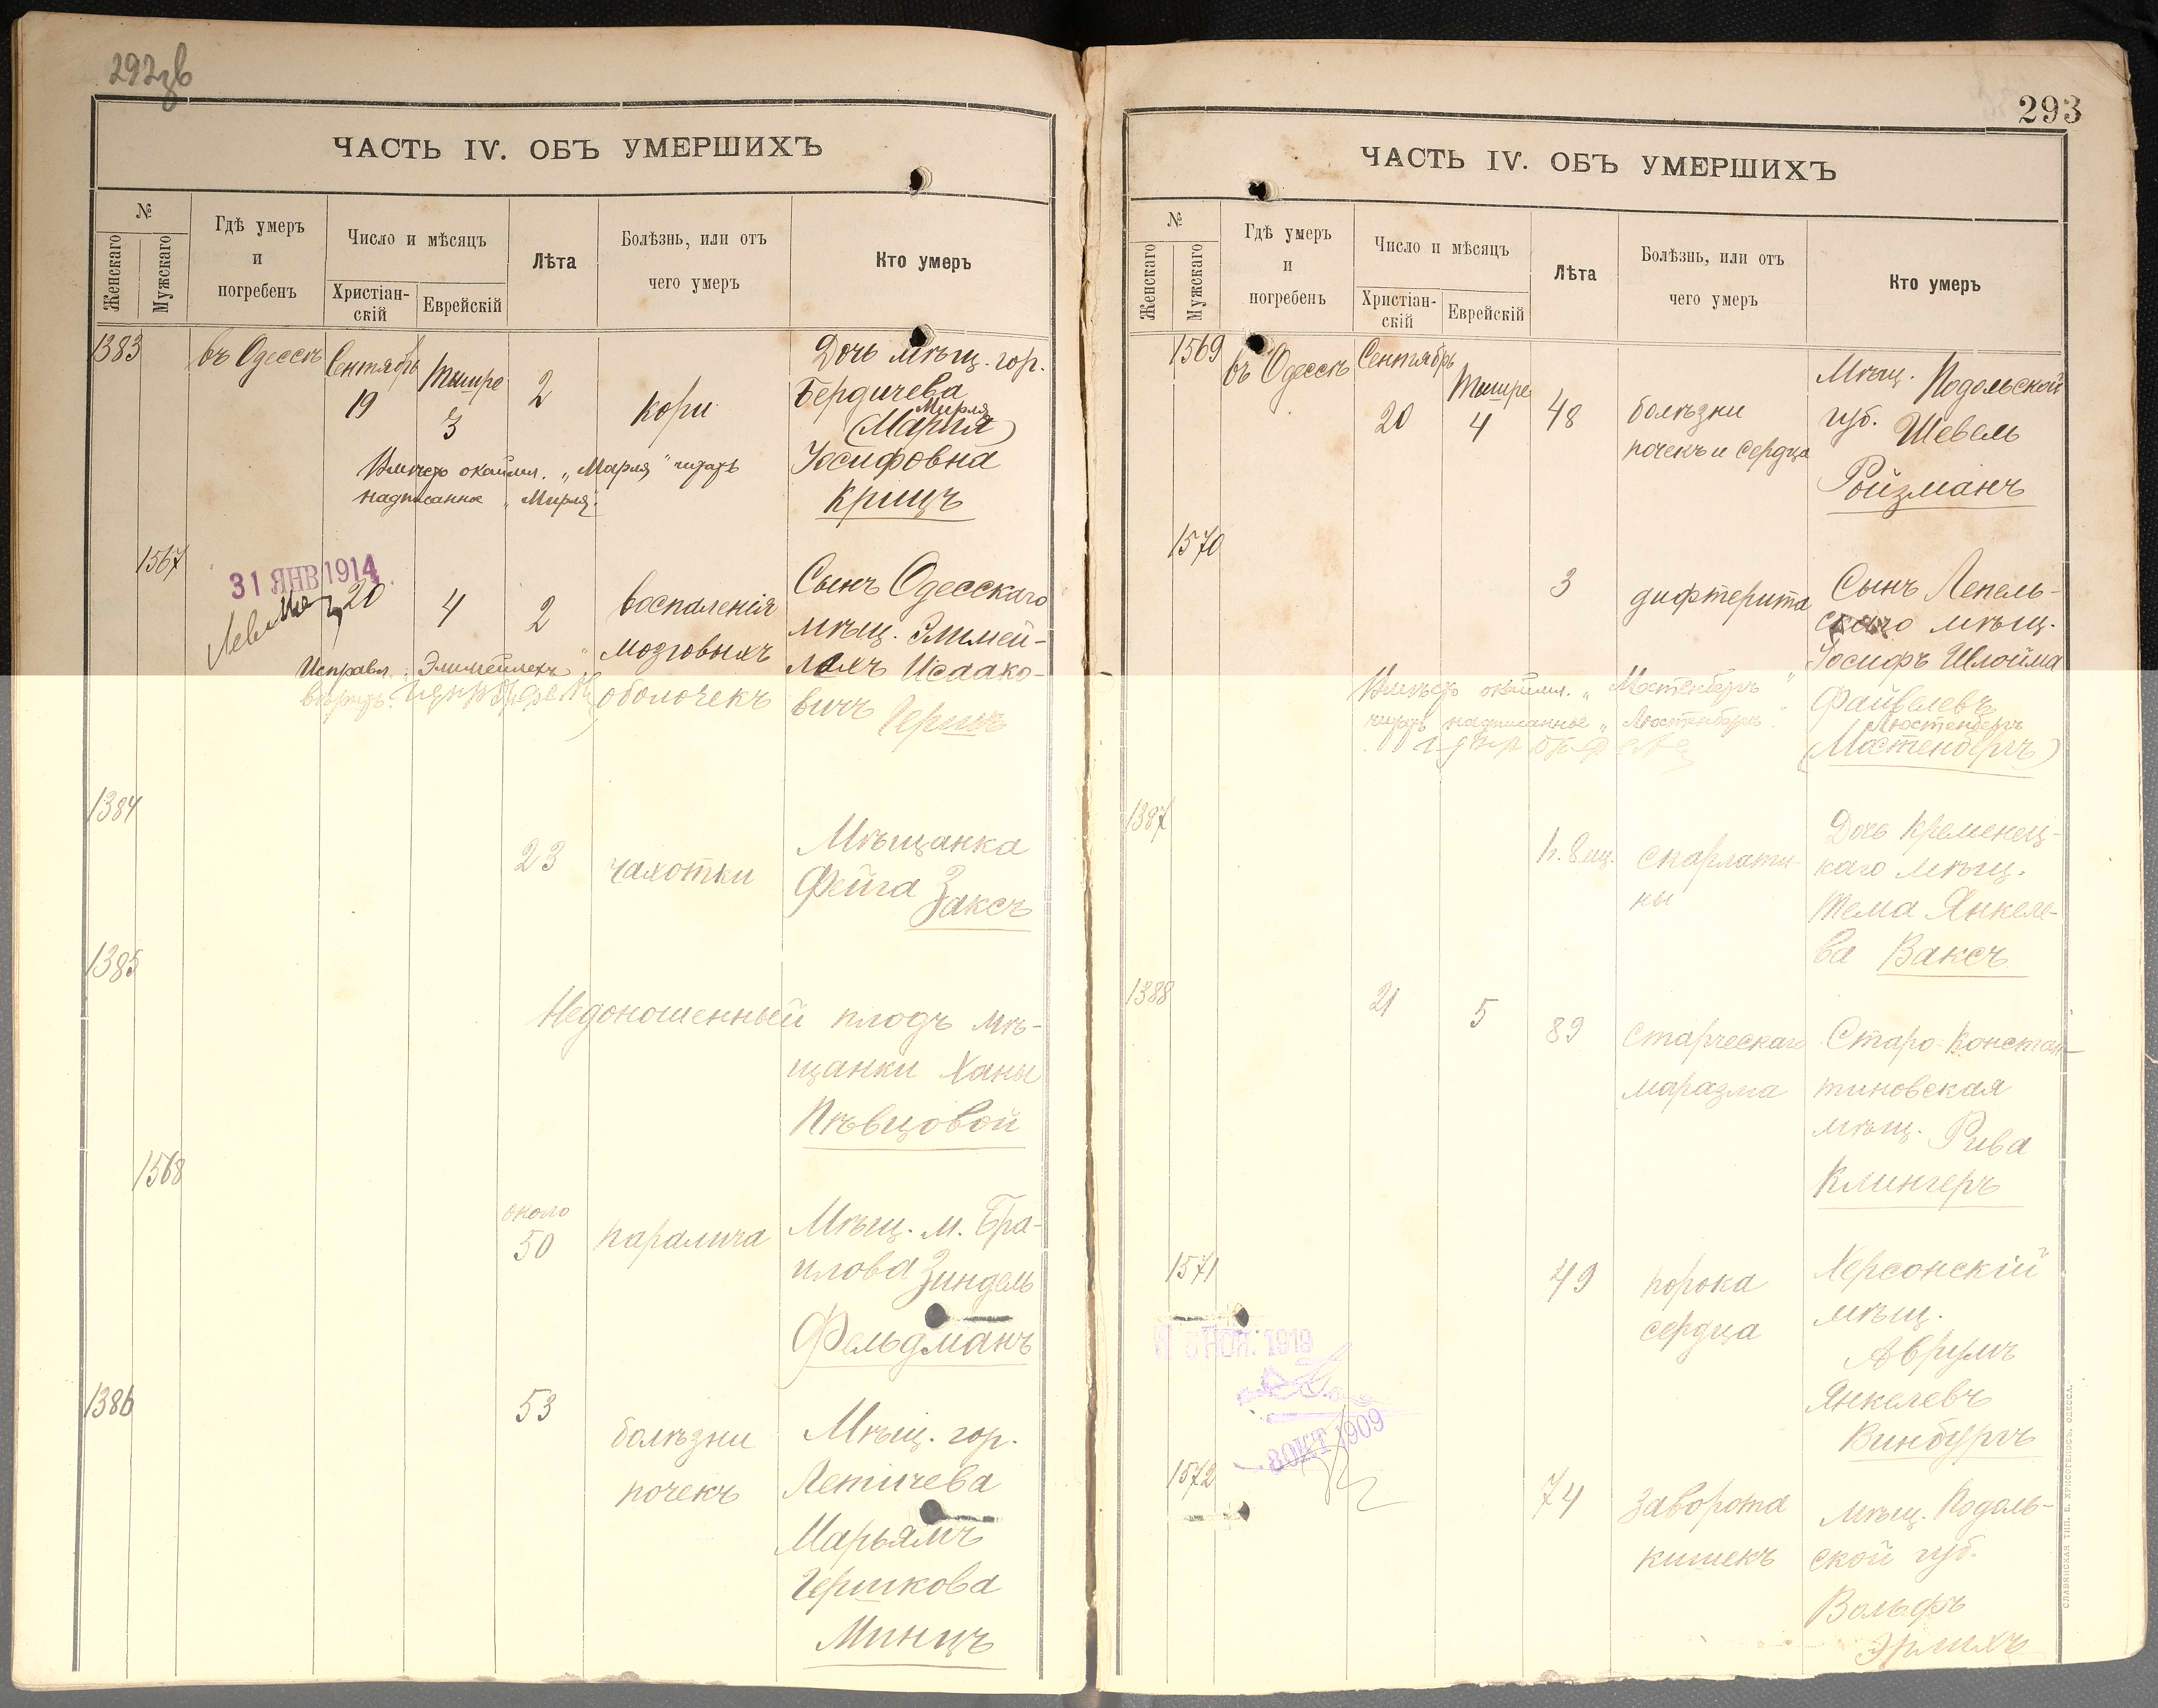 292
ЧАСТЬ IV. ОБЪ УМЕРШИХЪ
№
Женскаго
Мужскаго
Гдѣ умеръ
и
погребенъ
Число и мѣсяцъ
Христіан-
скій
Еврейскій
Лѣта
Болѣзнь, или отъ
чего умеръ
Кто умеръ
1383
въ Одессѣ
Сентябрь
19
Тишре
3
2
кори
Дочь мѣщ. гор.
Бердичева
Мирля
(Марля)
Іосифовна
Крицъ
Вмѣсто окаймл. „Марля" читать
надписанное „Мирля".
1567
31 ЯНВ 1914
20
4
2
воспаленія
мозговыхъ
оболочекъ
Сынъ Одесскаго
мѣщ. Элимей-
лахъ Исаако-
вичъ Гершъ
Исправл. „Элимейлехъ"
вѣрить.
1384
23
чахотки
Мѣщанка
Фейга Заксъ
1385
Недоношенный плодъ мѣ-
щанки Ханы
Пѣвцовой
1568
около
50
паралича
Мѣщ. м. Бра-
илова Зиндель
Фельдманъ
1386
53
болѣзни
почекъ
Мѣщ. гор.
Летичева
Марьямъ
Гершкова
Минцъ
293
ЧАСТЬ IV. ОБЪ УМЕРШИХЪ
№
Женскаго
Мужскаго
Гдѣ умеръ
и
погребенъ
Число и мѣсяцъ
Христіан-
скій
Еврейскій
Лѣта
Болѣзнь, или отъ
чего умеръ
Кто умеръ
1569
въ Одессѣ
Сентябрь
20
Тишре
4
48
болѣзни
почекъ и сердца
Мѣщ. Подольской
губ. Шевель
Ройзманъ
1570
3
дифтерита
Сынъ Лепель-
скаго мѣщ.
Іосифъ Шлойма
Файвелевъ
Люстенбергъ
(Мастенбергъ)
Вмѣсто окаймл. „Мастенбергъ"
читать надписанное „Люстенбергъ".
1387
1 г. 8 мц.
скарлати-
ны
Дочь Кременец-
каго мѣщ.
Тема Янкеле-
ва Ваксъ
1388
21
5
89
старческаго
маразма
Старо-Констан-
тиновская
мѣщ. Рива
Клингеръ
1571
49
порока
сердца
Херсонскій
мѣщ.
Аврумъ
Янкелевъ
Винбургъ
5 НОЯ. 1919
8 ОКТ 1909
1572
74
заворота
кишекъ
Мѣщ. Подоль-
ской губ.
Вольфъ
Эрлихъ
СЛАВЯНСКАЯ ТИП. Е. ХРИСОГЕЛОСЪ, ОДЕССА.